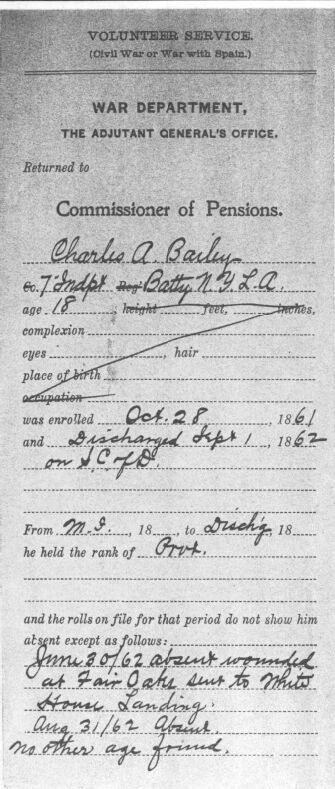 VOLUNTEER SERVICE.
(Civil War or War with Spain.)
WAR DEPARTMENT,
THE ADJUTANT GENERAL'S OFFICE.
Returned to
Commissioner of Pensions.
Charles A. Bailey
Co. 7" Indpt Reg't Batty N.Y.L.A.
age 18, height feet, inches,
complexion
eyes, hair
place of birth
occupation
was enrolled Oct. 28, 1861
and Discharged Sept 1, 1862
on S.C. of D.
From M.I., 18, to Dischg, 18
he held the rank of Pvt.
and the rolls on file for that period do not show him
absent except as follows:
June 30/62 absent wounded
at Fair Oaks sent to White
House Landing.
Aug 31/62 Absent.
No other age found.